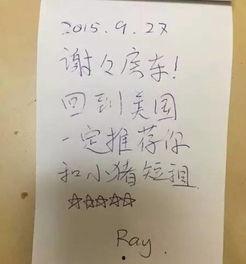 2015.9.27
谢々房东!
回到美国
一定推荐你
和小猪短租
☆☆☆☆☆
Ray.